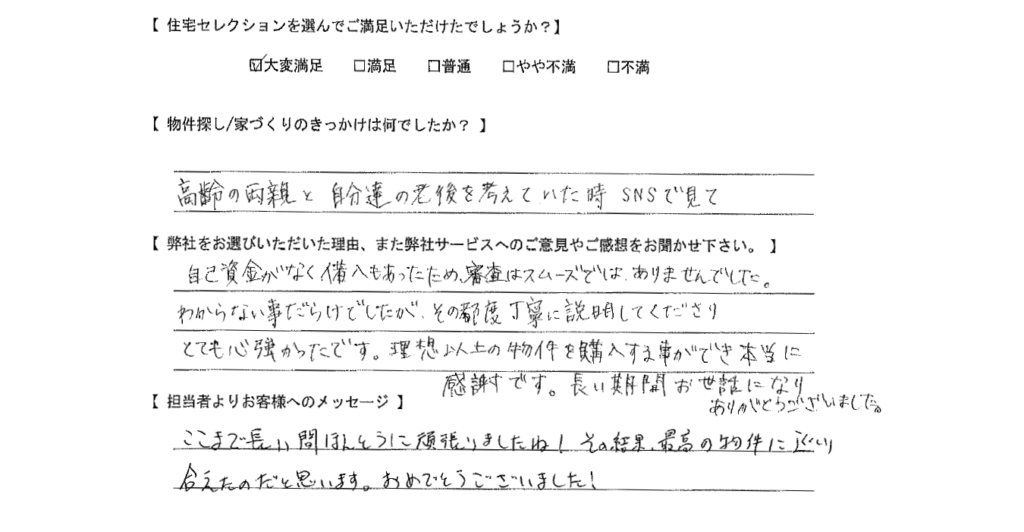 【 住宅セレクションを選んでご満足いただけたでしょうか？】
☑大変満足 □満足 □普通 □やや不満 □不満
【 物件探し/家づくりのきっかけは何でしたか？ 】
高齢の両親と自分達の老後を考えていた時 SNSで見て
【 弊社をお選びいただいた理由、また弊社サービスへのご意見やご感想をお聞かせ下さい。 】
自己資金がなく借入もあったため、審査はスムーズではありませんでした。
わからない事だらけでしたが、その都度丁寧に説明してくださり
とても心強かったです。理想以上の物件を購入する事ができ本当に
感謝です。長い期間お世話になり
ありがとうございました。
【 担当者よりお客様へのメッセージ 】
ここまで長い間ほんとうに頑張りましたね！その結果、最高の物件に巡り
合えたのだと思います。おめでとうございました！